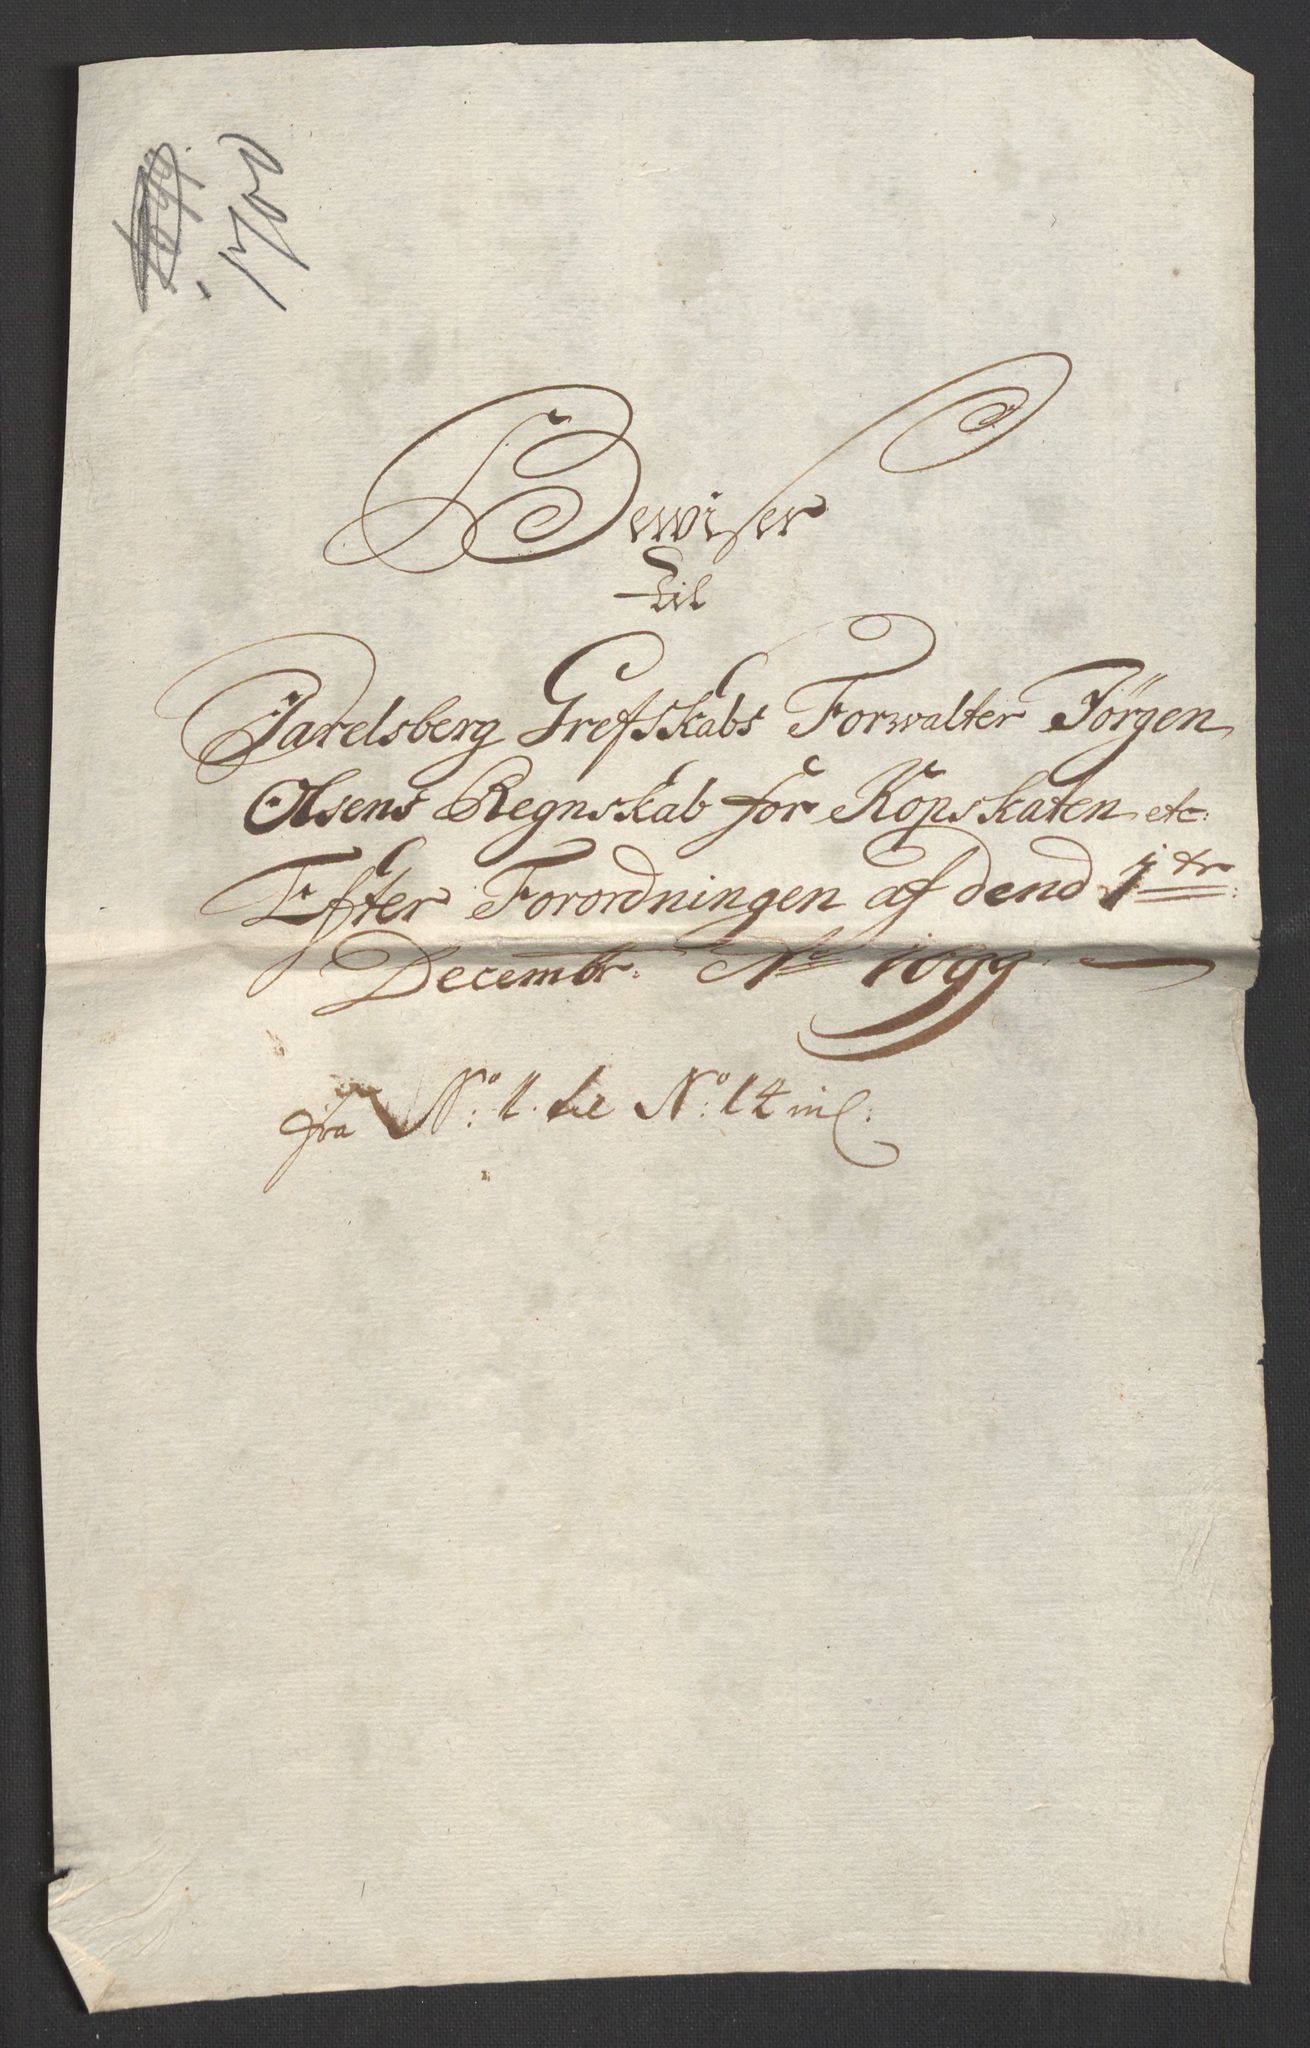 1701
1699.
Bewiser
til
Jarelsberg Grefskabs Forwalter Jörgen
Olsens Regnskab for Kopskaten etc:
Efter Forordningen af dend 1tr:
Decembr: Ao 1699.
fra No: 1. til No: 14 incl: